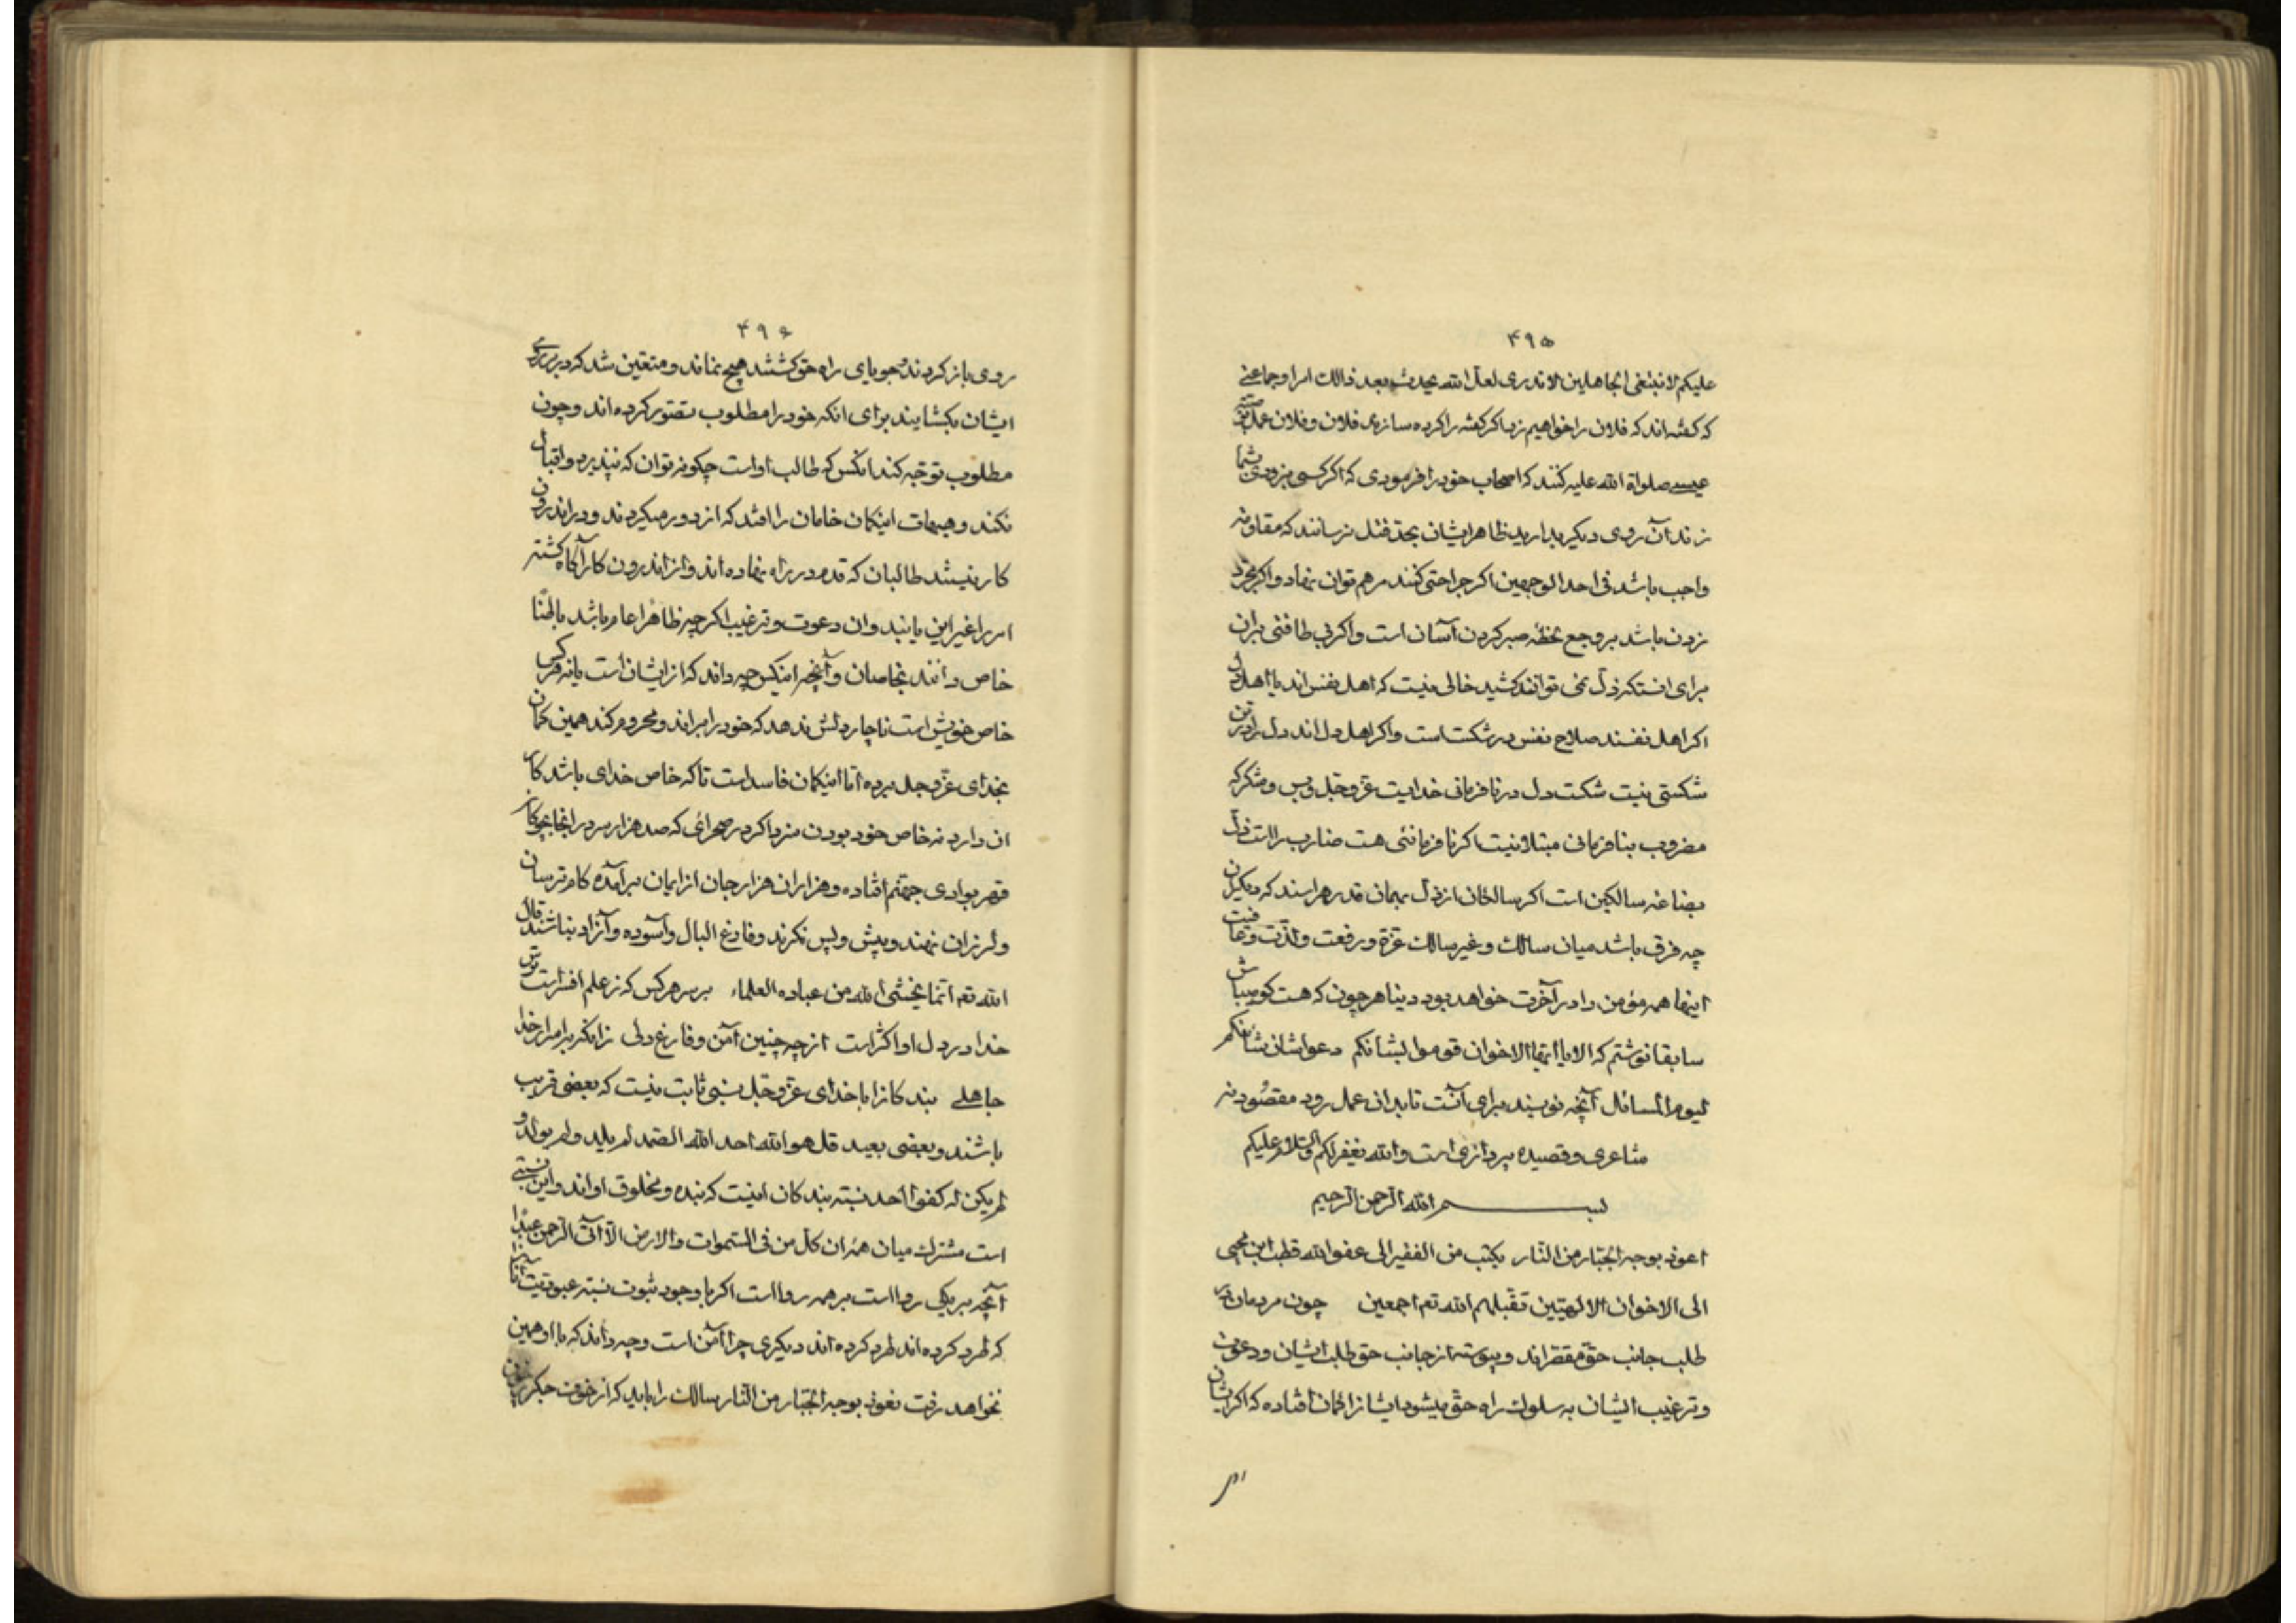 ۴۹۵
علیکم لا نبتغی الجاهلین لا تدری لعل الله یحدث بعد ذالک امرا و جماعتی
که گفته‌اند که فلان را خواهیم زد اگر گفته را کرده سازند فلان و فلان عمل
عیسی صلواة الله علیه کنند که اصحاب خود را فرمودی که اگر کسی بر روی شما
زند آن روی دیگر بدارید ظاهر ایشان بحد قتل نرسانند که مقاومة
واجب باشد فی احد الوجهین اگر جراحتی کنند مرهم توان نهاد و اگر مجرد
زدن باشد بر وجع لحظهٔ صبر کردن آسان است و اگر بی طاقتی بران
برای انستکه ذل نمی‌توانند کشید خالی نیست که اهل نفس‌اند یا اهل دل
اگر اهل نفسند صلاح نفس در شکست است و اگر اهل دل‌اند دل را در این
شکستی نیست شکست دل در نافرمانی خدایست عز و جل و بس و شکر که
مضروب بنافرمانی مبتلا نیست اگر نافرمانئی هست ضارب راست ذل
بضاعة سالکین است اگر سالکان از ذل بهمان قدر هراسند که دیگران
چه فرق باشد میان سالک و غیر سالک عزة و رفعت و لذت و عافیت
اینها همه مؤمن را در آخرت خواهد بود دینا هر چون که هست کو میباش
سابقا نوشتم که الا یا ایها الاخوان قوموا لشانکم دعوا شان شانکم
لیوم المسائل آنچه نویسند برای آنست تا بدان عمل رود مقصود نه
شاعری و قصیده پردازی است والله یغفر لکم والسلام علیکم
بسم الله الرحمن الرحیم
اعوذ بوجه الجبار من النار یکتب من الفقیر الی عفو الله قطب ابن محیی
الی الاخوان الالهیین تقبلهم الله تع اجمعین چون مردمان در
طلب جانب حق مقصراند و پیوسته از جانب حق طلب ایشان و دعوت
و ترغیب ایشان به سلوک راه حق میشود ایشانرا گمان افتاده که اگر ایشان
۴۹۶
روی باز کردند و جویای راه حق گشتند هیچ نماند و متعین شد که در بر روی
ایشان بگشایند برای انکه خود را مطلوب تصور کرده‌اند و چون
مطلوب توجه کند انکس که طالب اوست چگونه توان که نپذیرد و اقبال
نکند و هیهات اینگمان خامان را افتد که از دور میگردند و در اندرون
کار نیستند طالبان که قدم در راه نهاده‌اند و از اندرون کار آگاه گشته
امر را غیر این یابند و ان دعوت و ترغیب اگر چه ظاهرا عام باشد باطنا
خاص دانند بخاصان و آنچه اینکس چه داند که از ایشان است یا نه هر کس
خاص خویش است ناچار دلش ندهد که خود را براند و محروم کند همین گمان
بخدای عز و جل برده اما اینگمان فاسد است تا که خاص خدای باشد کار
ان دارد نه خاص خود بودن در صحرائی که صد هزار سر در انجا چو گو
قهر بوادی جهنم افتاده و هزاران هزار جان از ایمان برآمده کام ترسان
و لرزان نهند و پیش و پس نگرند و فارغ البال و آسوده و آزاد نباشند قال
الله تع انما یخشی الله من عباده العلماء بر سر هر کس که ز علم افسر است ترس
خدا در دل او اکثر است از چه چنین آمن و فارغ دلی زانکه بر اسرار خدا
جاهلی بندکانرا با خدای عز و جل نسبتی ثابت نیست که بعضی قریب
باشند و بعضی بعید قل هو الله احد الله الصمد لم یلد و لم یولد و
لم یکن له کفوا احد نسبة بندکان اینست که بنده و مخلوق اواند و این نسبتی
است مشترک میان همه ان کل من فی السموات والارض الا آتی الرحمن عبدا
آنچه بر یکی رواست بر همه رواست اگر با وجود ثبوت نسبة عبودیت
که طرد کرده‌اند طرد کرده‌اند دیگری چرا آمن است و چه داند که با او همین
نخواهد رفت نعوذ بوجه الجبار من النار سالک را باید که از خوف جگر خون